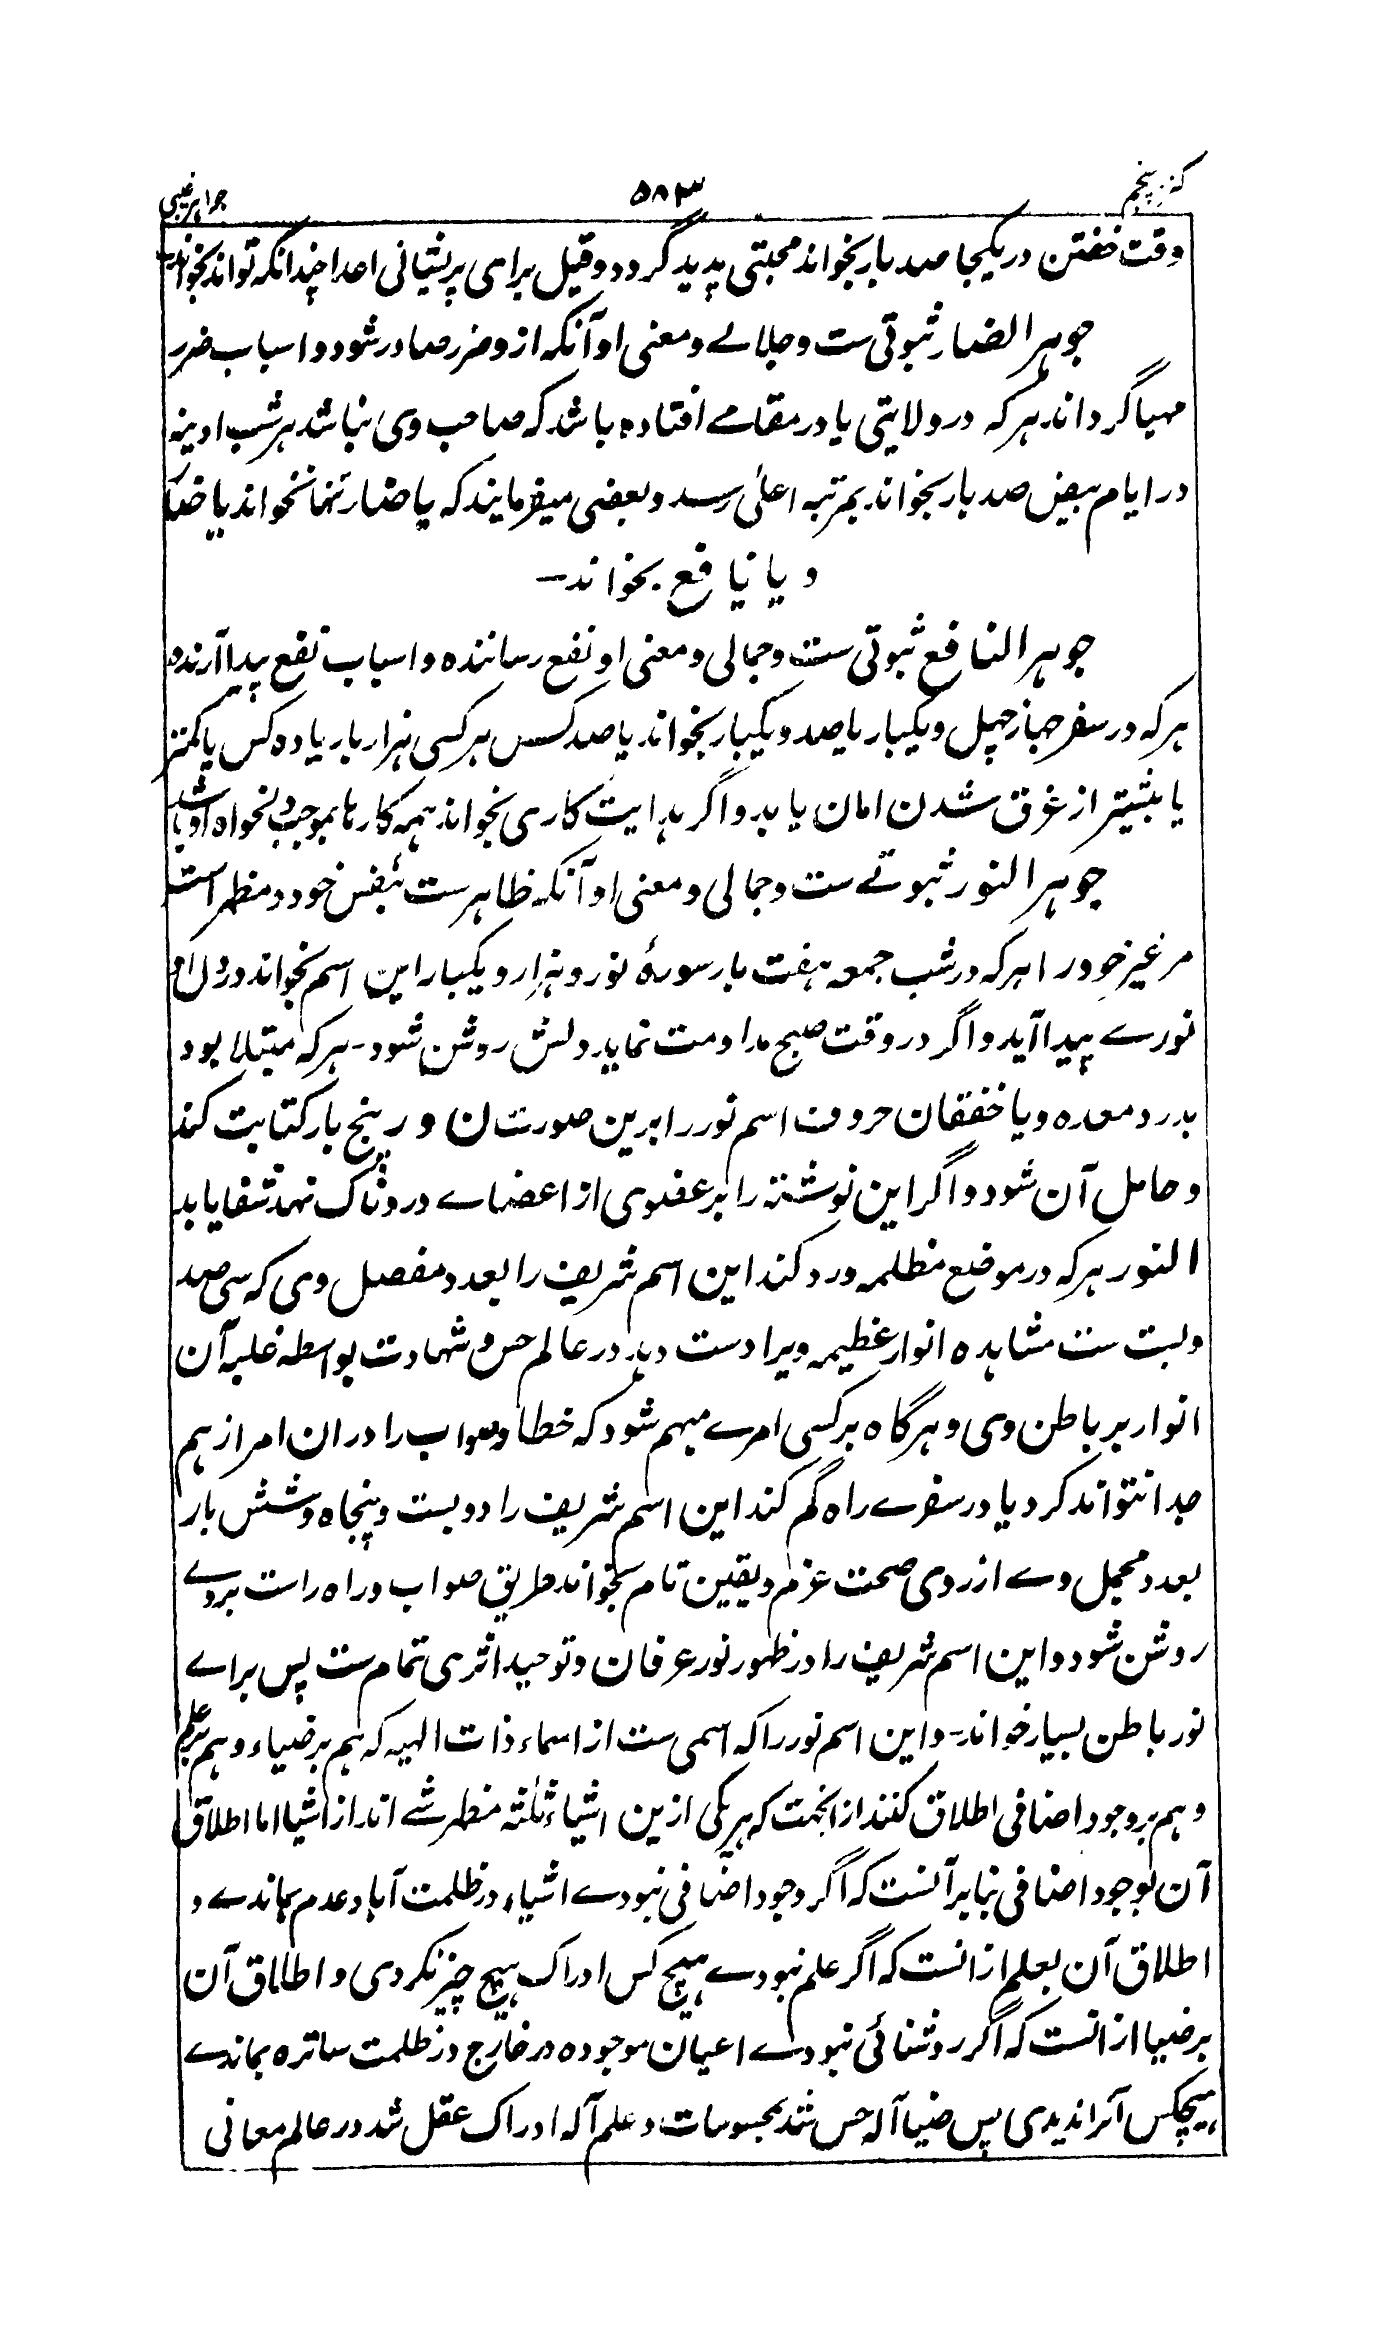 کنز پنجم ۵۸۳ جواہر غیبی
وقت خفتن در یکجا صد بار بخواند محبتی پدید گردد و قیل برای پریشانی اعدا چندانکه تواند بخواند
جوہر الضار ثبوتی ست و جلالے و معنی او آنکه ازو ضرر صادر شود و اسباب ضرر
مہیا گرداند ہر که در ولایتی یا در مقامے افتاده باشد که صاحب وی نباشد ہر شب ادینہ
در ایام بیض صد بار بخواند بمرتبہ اعلیٰ رسد و بعضی میفرمایند که یا ضار تنها نخواند یا ضار
و یا نافع بخواند ۔
جوہر النافع ثبوتی ست و جمالی و معنی او نفع رساننده و اسباب نفع پیدا آرنده
ہر که در سفر جہاز چہل و یکبار یا صد و یکبار بخواند یا صد کس ہر کسی ہزار بار یا ده کس یا کمتر
یا بیشتر از غرق شدن امان یابد و اگر بدایت کاری بخواند ہمہ کارہا بموجب دلخواه او باشد
جوہر النور ثبوتے ست و جمالی و معنی او آنکه ظاہرست بنفس خود و مظہر است
مر غیر خود را ہر که در شب جمعہ ہفت بار سورهٔ نور و ہزار و یکبار این اسم بخواند در دل او
نورے پیدا آید و اگر در وقت صبح مداومت نماید دلش روشن شود ۔ ہر که مبتلا بود
بدرد معده و یا خفقان حروف اسم نور را برین صورت ن و ر پنج بار کتابت کند
و حامل آن شود و اگر این نوشتہ را بر عضوی از اعضاے دردناک نہد شفا یابد
النور ہر که در موضع مظلمہ ورد کند این اسم شریف را بعدد مفصل وی که سی صد
و بست ست مشاہده انوار عظیمہ ویرا دست دہد در عالم حس و شہادت بواسطہ غلبہ آن
انوار بر باطن وی و ہرگاه بر کسی امرے مبہم شود که خطا و صواب را دران امر از ہم
جدا نتواند کرد یا در سفرے راه گم کند این اسم شریف را دوبست و پنجاه و شش بار
بعدد مجمل وے از روی صحت عزم و یقین تام بخواند طریق صواب و راه راست بروے
روشن شود و این اسم شریف را در ظہور نور عرفان و توحید اثری تمام ست پس براے
نور باطن بسیار خواند ۔ و این اسم نور را که اسمی ست از اسماء ذات الہیہ که ہم بر ضیاء و ہم بر علم
و ہم بر وجود اضافی اطلاق کنند ازانجہت که ہر یکی ازین اشیاء ثلثہ مظہر شے اند از اشیا اما اطلاق
آن بوجود اضافی بنا برآنست که اگر وجود اضافی نبودے اشیاء در ظلمت آباد عدم بماندے و
اطلاق آن بعلم ازانست که اگر علم نبودے ہیچ کس ادراک ہیچ چیز نکردی و اطلاق آن
بر ضیا ازانست که اگر روشنائی نبودے اعیان موجوده در خارج در ظلمت ساتره بماندے
ہیچکس آنرا ندیدی پس ضیا آلہ حس شد بمحسوسات و علم آلہ ادراک عقل شد در عالم معانی